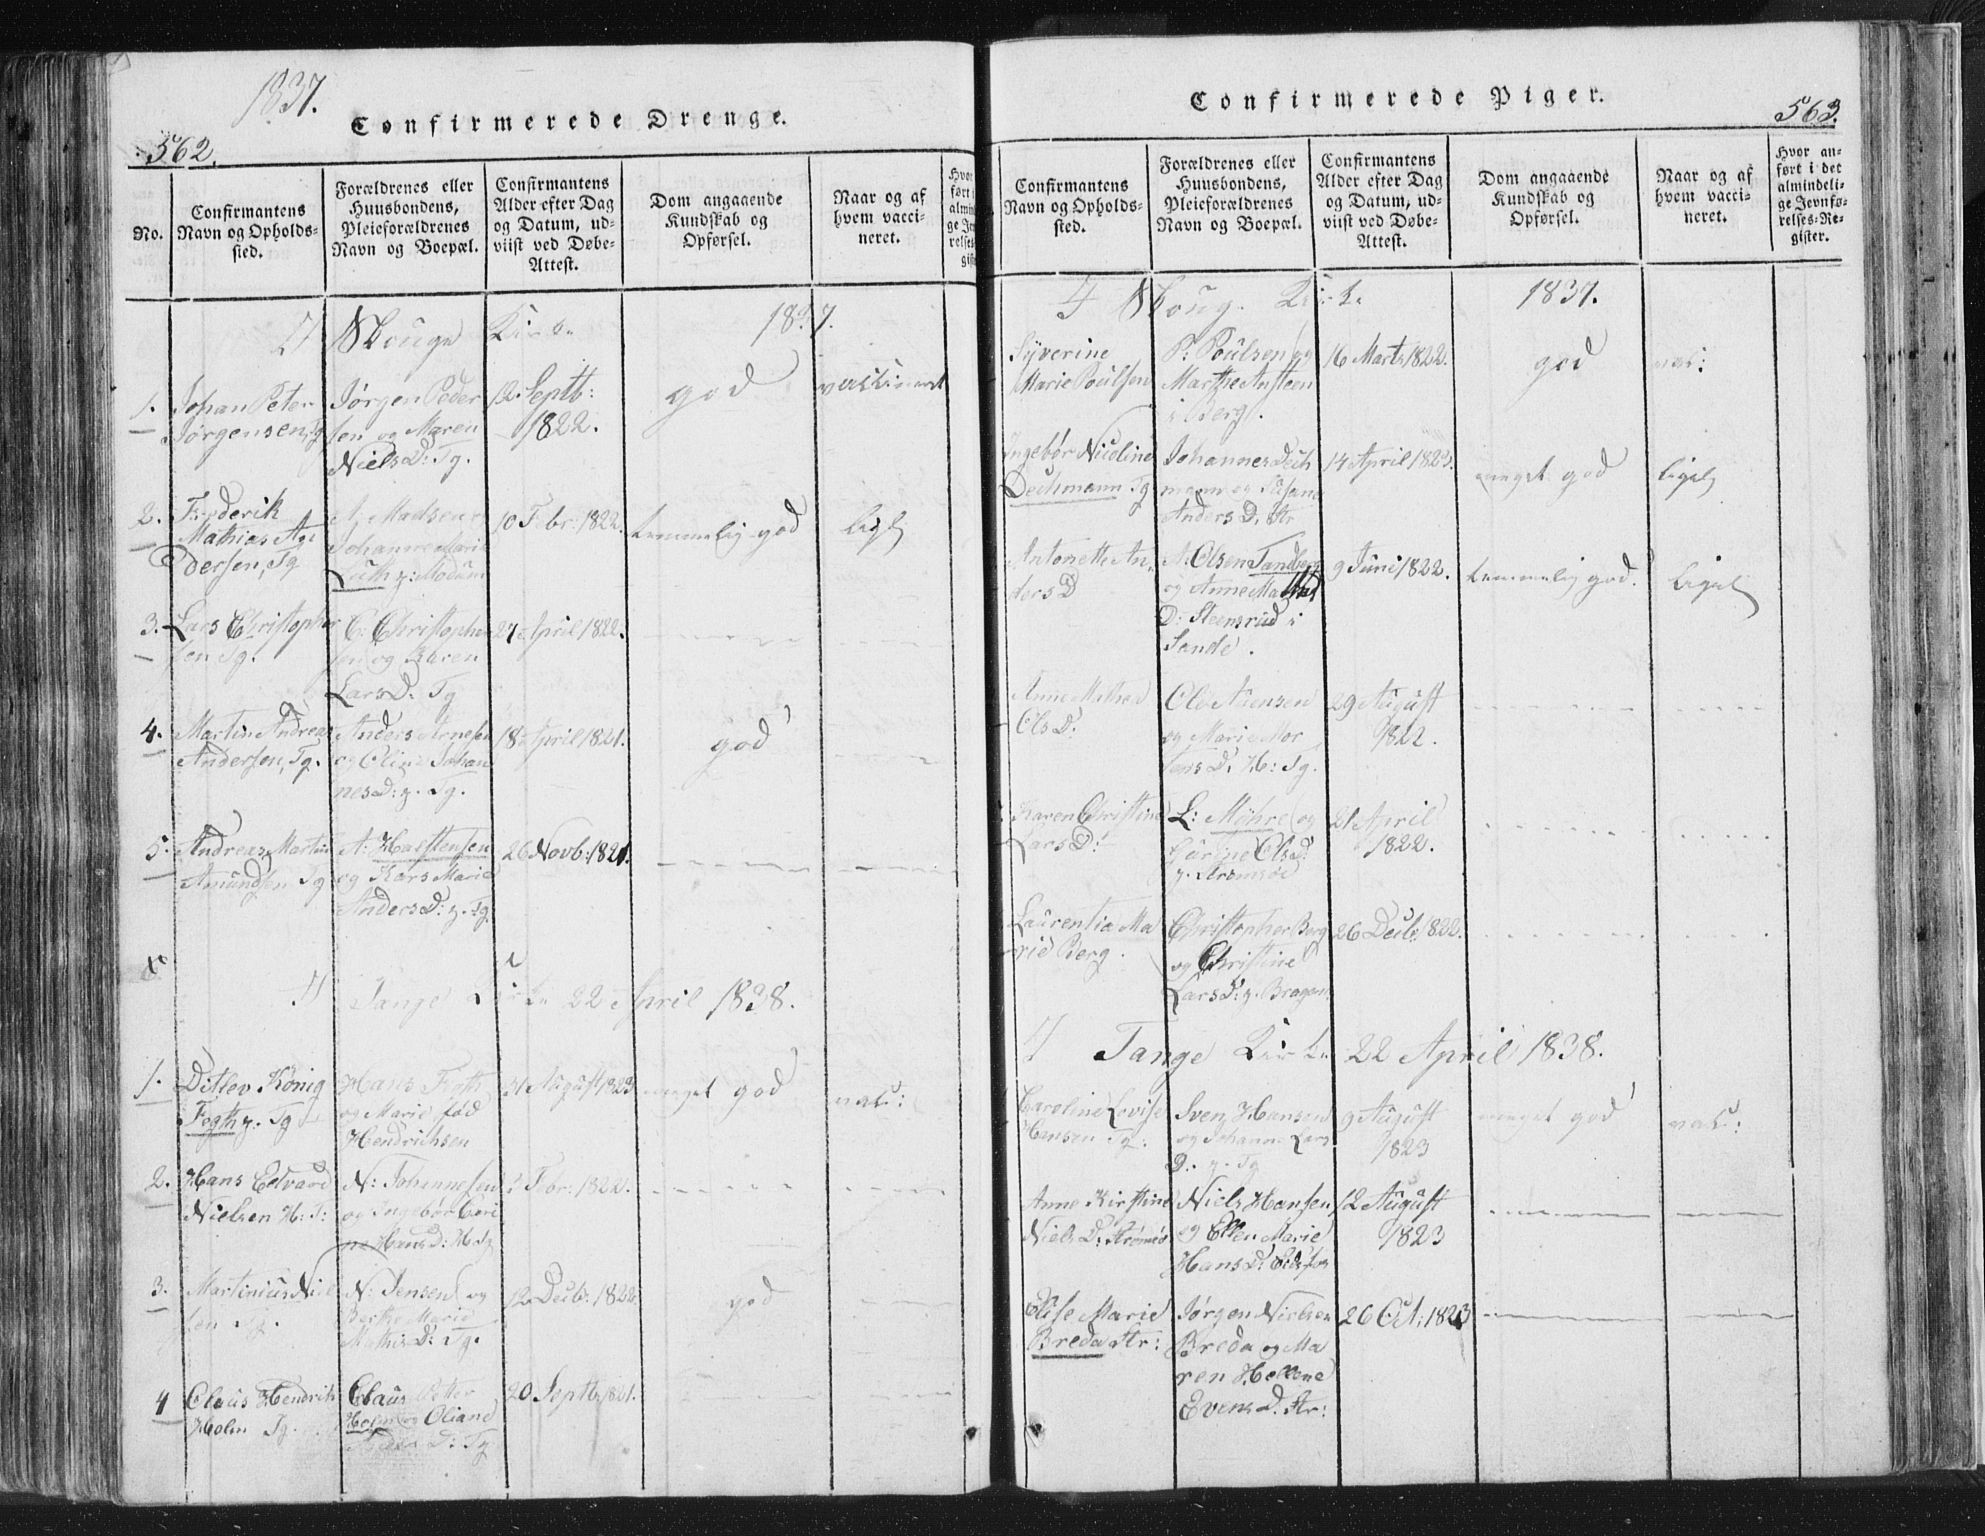 1837.
Confirmerede Drenge.
562.
No.
Confirmantens
Navn og Opholds-
sted.
Forældrenes eller
Huusbondens,
Pleieforældrenes
Navn og Boepæl.
Confirmantens
Alder efter Dag
og Datum, ud-
viist ved Døbe-
Attest.
Dom angaaende
Kundskab og
Opførsel.
Naar og af
hvem vacci-
neret.
Skouge Kirke 1837.
1. Johan Peter
Jørgensen, Tg
Jørgen Peder
sen og Maren
Niels D: Tg.
12 Septb:
1822.
god
vaccineret
2. Frederik
Mathias An
dersen, Tg
A: Madsen
Johanne Marie
Luth z: Modum
10 Febr: 1822.
temmelig god
ligel
3. Lars Christopher
sen Tg.
C: Christopher
sen og Karen
Lars D: Tg
27 April 1822.
4. Martin Andreas
Andersen, Tg.
Anders Arnesen
og Oline Johan
nes D: z. Tg.
18 April 1821.
god
5. Andreas Martin
Amundsen Tg
A: Karstensen
og Kars Marie
Anders D: z. Tg.
26 Novb: 1821.
Tange Kirke 22 April 1838.
1. Ditlev König
Fogth z. Tg
Hans Fogth
og Marie fød
Hendrichsen
31 August 1823
meget god
vac:
2. Hans Edvard
Nielsen H: T:
N: Johannesen
og Ingebør Cari
ne Hans D:
Febr: 1822.
3. Martinius Niel
sen Tg.
N: Jensen og
Berthe Marie
Mathis D: Tg.
12 Decbr: 1822
god
4 Claus Hendrik
Holm Tg.
Claus Petter
Holm og Oliane
D: Tg
20 Septb: 1821.
Confirmerede Piger.
563.
Confirmantens
Navn og Opholds-
sted.
Forældrenes eller
Huusbondens,
Pleieforældrenes
Navn og Boepæl.
Confirmantens
Alder efter Dag
og Datum, ud-
viist ved Døbe-
Attest.
Dom angaaende
Kundskab og
Opførsel.
Naar og af
hvem vacci-
neret.
Hvor an-
ført i det
almindeli-
ge Jevnfø-
relses-Re-
gister.
Skoug. Kirke 1837.
Syverine
Marie Poulsen
P: Poulsen og
Marthe Ansteen
i Berg.
16 Marts 1822.
god
vac:
Ingebør Nicoline
Dechmann Tg
Johannes Dech
mann og Susane
Anders D. Str
14 April 1823.
meget god
ligel
Antonette An
ders D
A: Olsen Tandberg
og Anne Mathis
D: Steensrud i
Sande.
9 Juni 1822.
temmelig god.
ligel
Anne Mathea
Ols D:
Ole Aaensen
og Marie Mor
tens D: H: Tg.
29 August
1822.
Karen Christine
Lars D:
L: Möhre og
Gurine Ols D:
z. Strömsöe
21 April
1822.
Laurentia Ma
rie Berg.
Christopher Berg
og Christine
Lars D: z. Bragen.
26 Decb: 1822.
Tange Kirke 22 April 1838.
Caroline Lovise
Hansen Tg:
Sven Hansen
og Johanne Lars
D. z. Tg
9 August
1823
meget god
vac:
Anne Kirstine
Niels D: Strömsö
Niels Hansen
og Ellen Marie
Hans D: Eidsfos
12 August
1823
Elise Marie
Breda Str:
Jørgen Nielsen
Breda og Ma
ren Hellene
Evens D. Str:
26 Oct: 1823